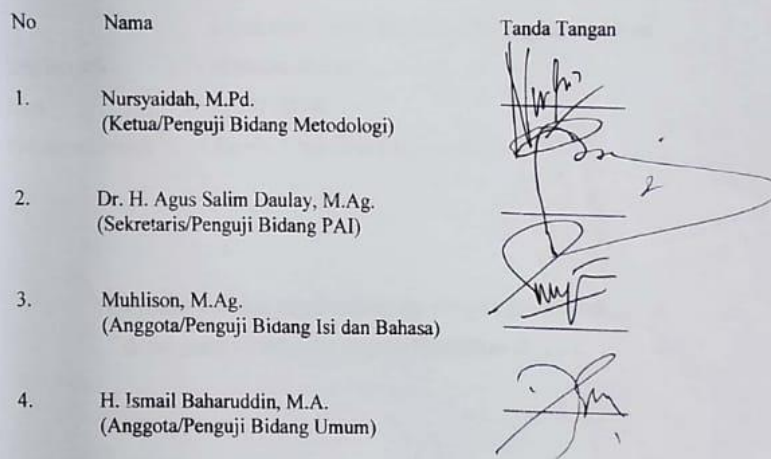 No Nama Tanda Tangan
1. Nursyaidah, M.Pd.
(Ketua/Penguji Bidang Metodologi)
2. Dr. H. Agus Salim Daulay, M.Ag.
(Sekretaris/Penguji Bidang PAI)
3. Muhlison, M.Ag.
(Anggota/Penguji Bidang Isi dan Bahasa)
4. H. Ismail Baharuddin, M.A.
(Anggota/Penguji Bidang Umum)